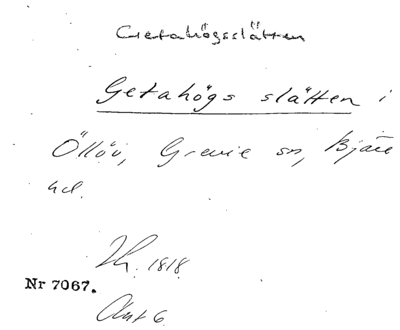 Getahögsslätten
Getahögs slätten i
Öllöv, Grevie sn, Bjäre
hd.
1818.
Nr 7067.
Akt 6